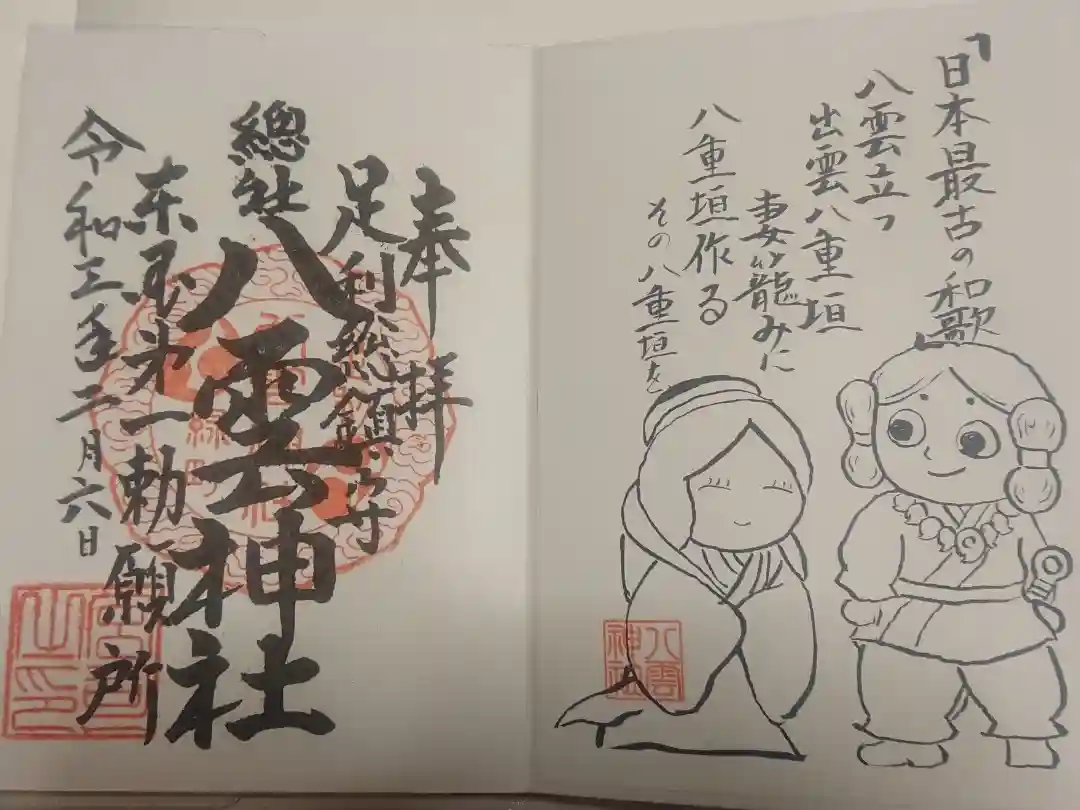 「日本最古の和歌」
八雲立つ
出雲八重垣
妻籠みに
八重垣作る
その八重垣を
八雲
神社
奉拝
足利総鎮守
總社
八雲神社
東国第一勅願所
令和三年二月六日